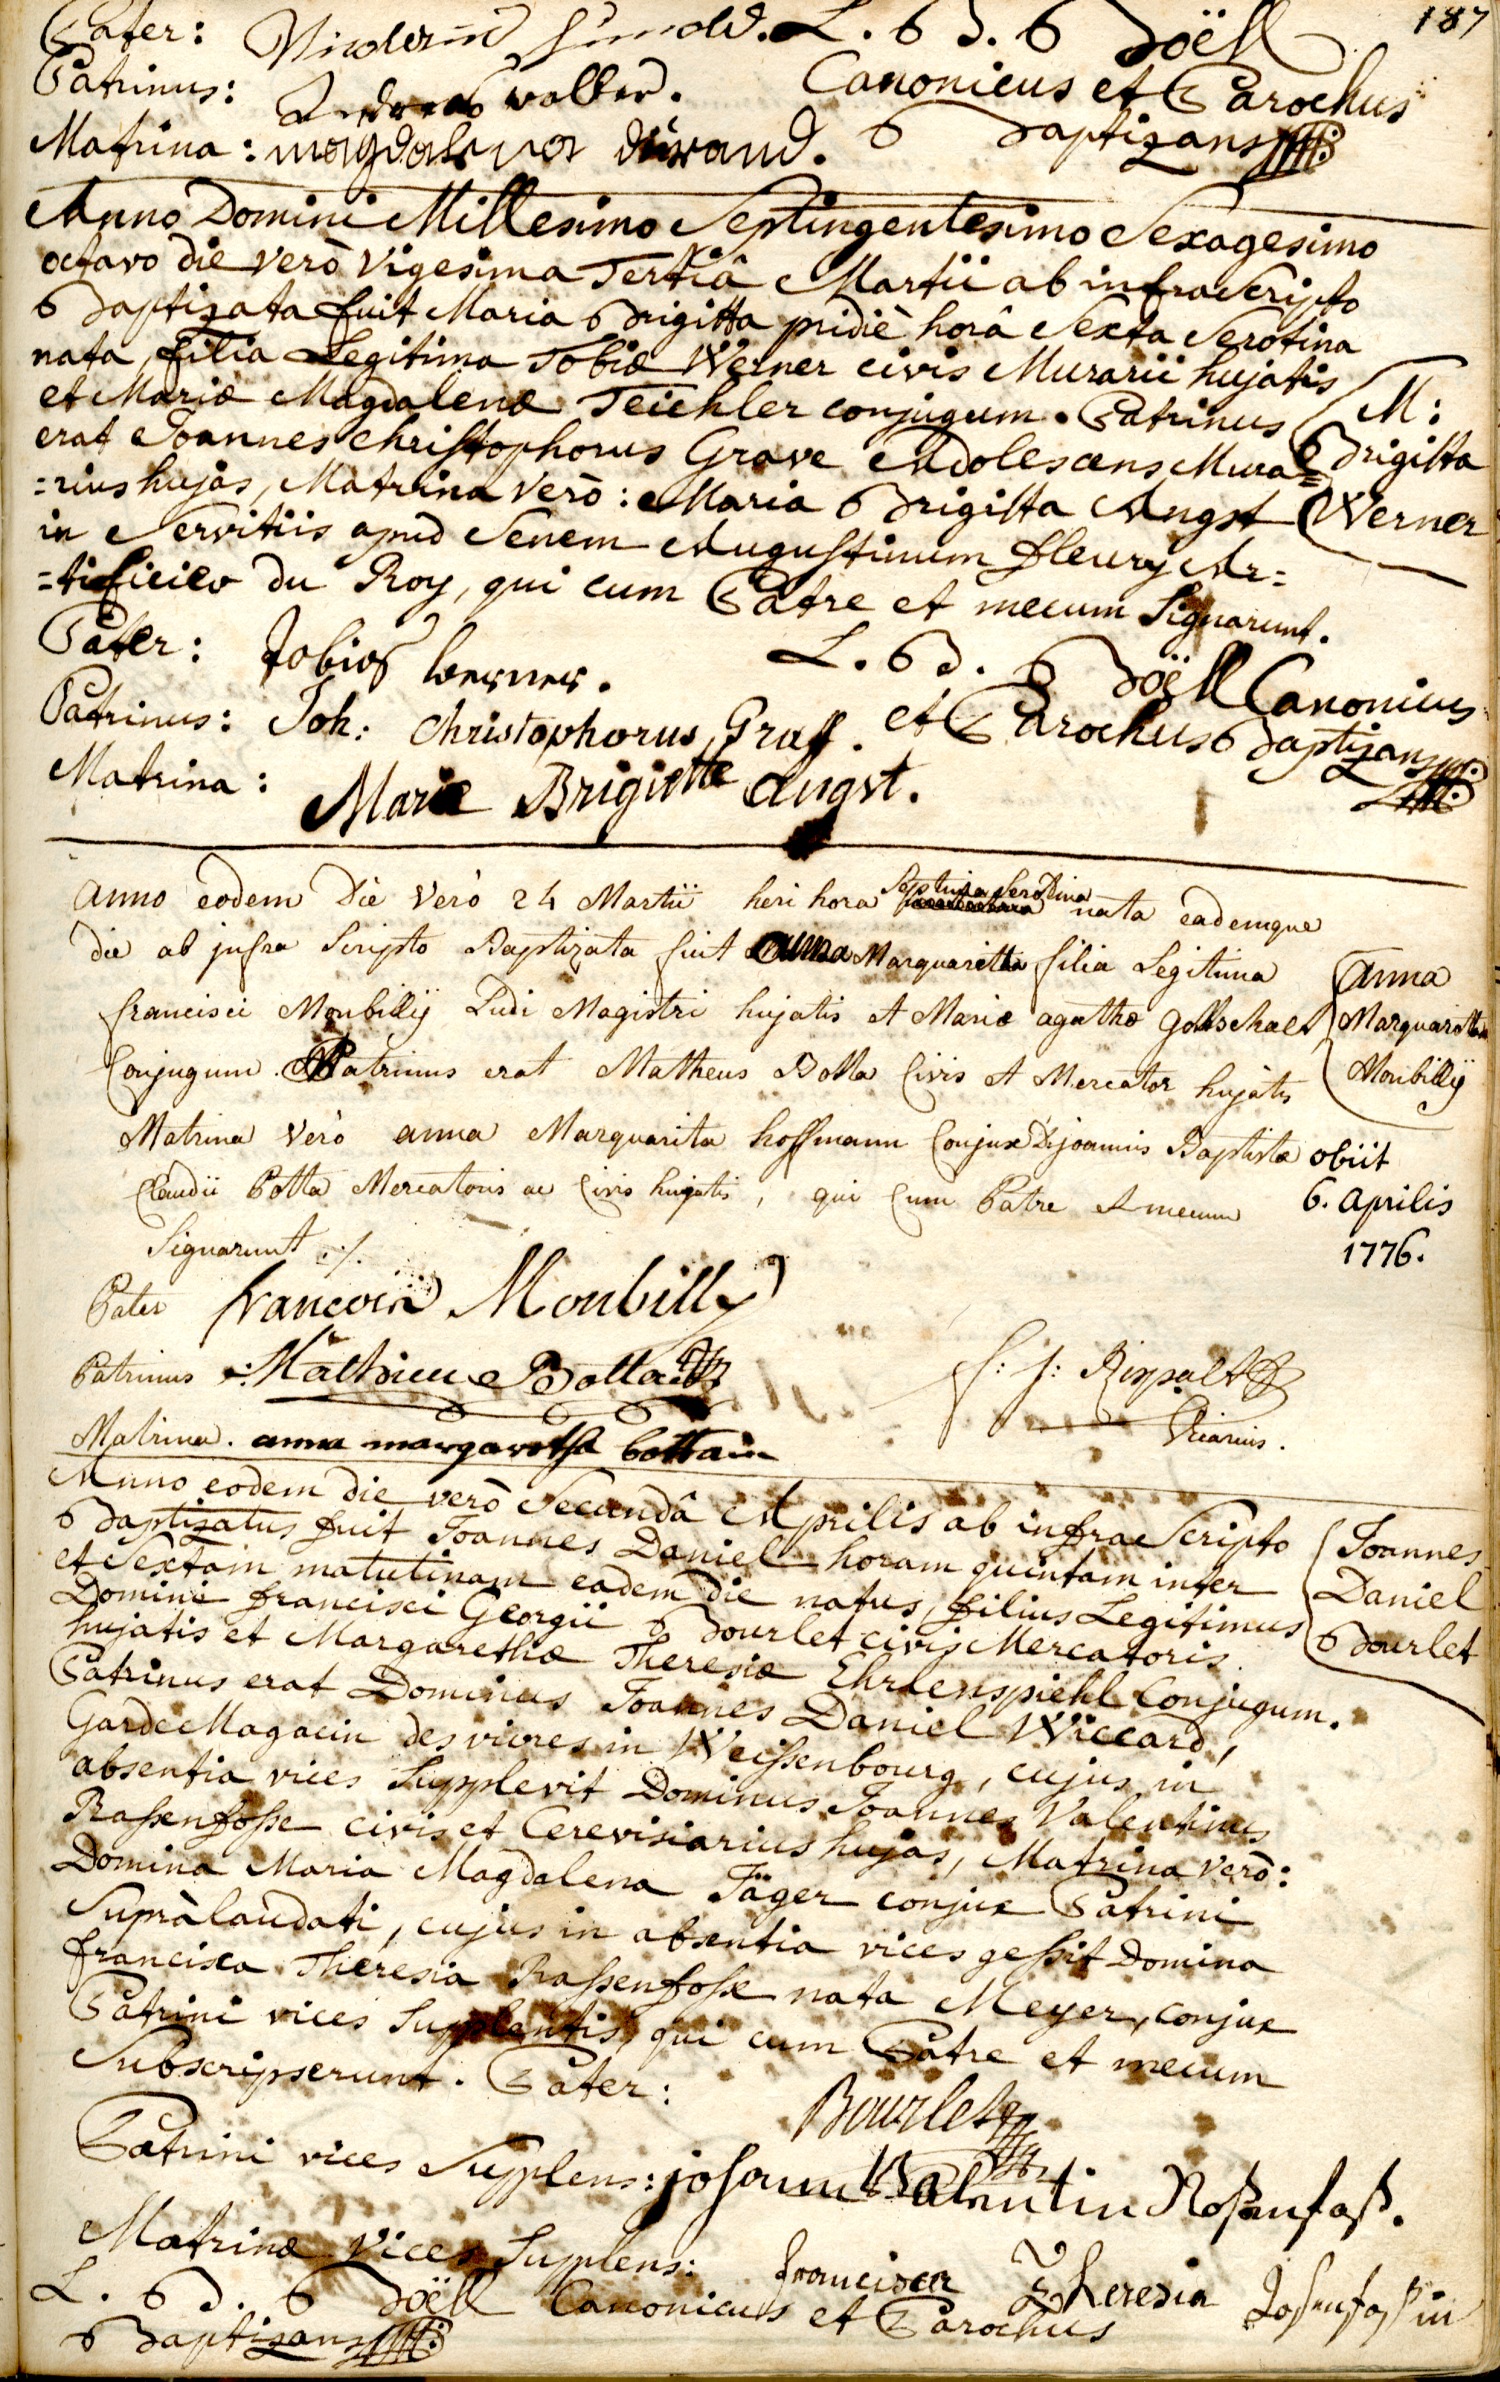 187
Pater: L. B. Böell
Patrinus: Andreas walter. Canonicus et Parochus
Matrina: magdalena durand. Baptizans
Anno Domini Millesimo Septingentesimo Sexagesimo
octavo die verò vigesima Tertiâ Martii ab infraScripto
Baptizata fuit Maria Brigitta pridiè horâ Sexta Serotina
nata, filia Legitima Tobiæ Werner civis Murarii hujatis
et Mariæ Magdalenæ Teichler conjugum. Patrinus
erat Joannes Christophorus Grave Adolescens Mura=
=rius hujas, Matrina verò: Maria Brigitta Angst
in Servitiis apud Senem Augustinum fleury Ar=
=tificier du Roy, qui cum Patre et mecum Signarunt.
M:
Brigitta
Werner
Pater: Tobias werner. L. B. Böell Canonicus
Patrinus: Joh: Christophorus Graff. et Parochus Baptizans
Matrina: Marie Brigitte Angst.
Anno eodem Die Verò 24 Martii heri hora Septima Serotina nata eademque
die ab jnfra Scripto Baptizata fuit Anna Marquaritta filia Legitima
francisci Monbillÿ Ludi Magistri hujatis et Mariæ agathæ Gottschalt
Conjugum. Patrinus erat Matheus Botta Civis et Mercator hujatis
Matrina Verò anna Marquarita hoffmann Conjux Djoannis Baptistæ
Claudii Botta Mercatoris ac Civis hujatis, qui Cum Patre et mecum
Signarunt ./.
anna
Marquaritta
Monbillÿ
obiit
6. aprilis
1776.
Pater francois Monbilly
Patrinus: Mathieu Botta
f: j: Rispalt
Vicarius.
Matrina. anna margaretha bottain
Anno eodem die verò Secundâ Aprilis ab infraScripto
Baptizatus fuit Joannes Daniel horam quintam inter
et Sextam matutinam eadem die natus, filius Legitimus
Domini francisci Georgii Bourlet civis Mercatoris
hujatis et Margarethæ Theresiæ Ehrlenspiehl Conjugum.
Patrinus erat Dominus Joannes Daniel Wiccard,
Garde Magacin des vivres in Weissenbourg, cujus in
absentia vices Supplevit Dominus Joannes Valentinus
Rassenfosse civis et Cerevisiarius hujas, Matrina verò:
Domina Maria Magdalena Jäger conjux Patrini
Supràlaudati, cujus in absentia vices gessit Domina
francisca Theresia Rassenfosse nata Meyer, conjux
Patrini vices Supplentis, qui cum Patre et mecum
Subscripserunt. Pater: Bourlet
Joannes
Daniel
Bourlet
Patrini vices Supplens: johann Valentin Roßenfoß.
Matrinæ vices Supplens: francisca Theresia Roßenfoßin
L. B. Böell Canonicus et Parochus
Baptizans